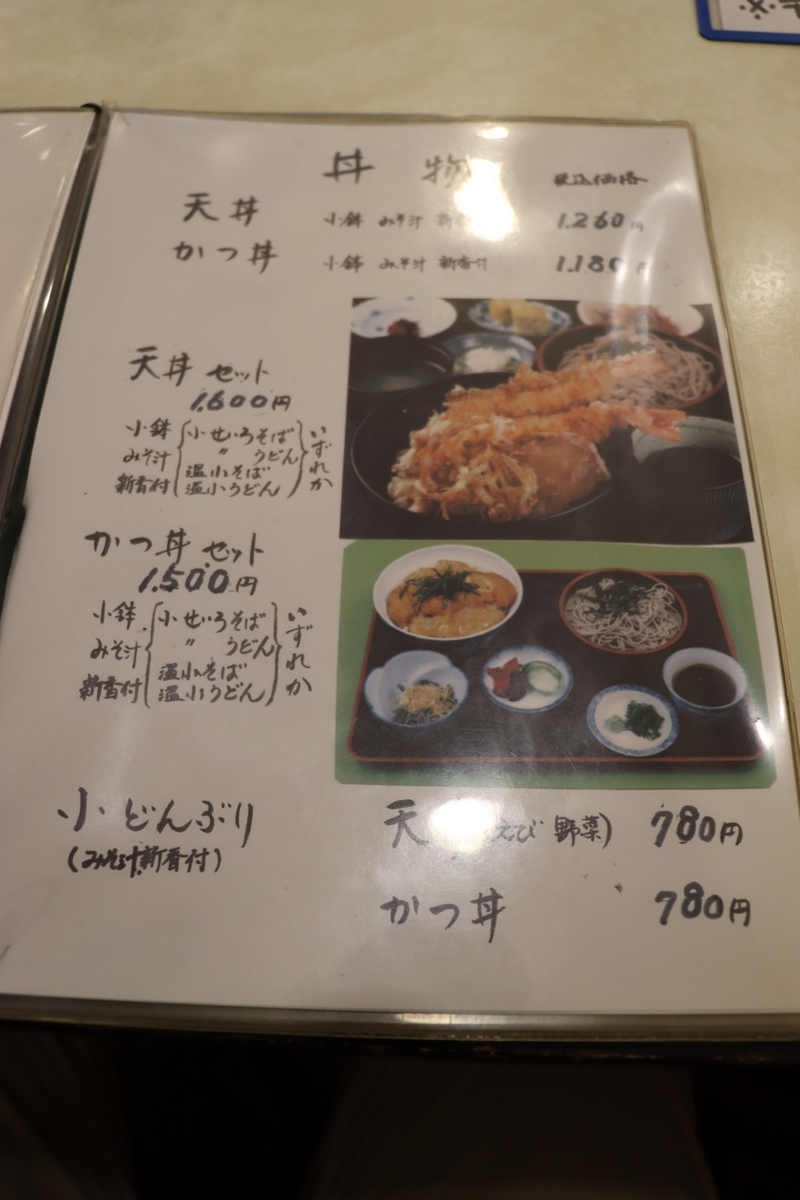 丼 物 税込価格
天丼 小鉢 みそ汁 新 1.260円
かつ丼 小鉢 みそ汁 新香付 1.180円
天丼 セット
1.600円
小鉢 小せいろそば いずれか
みそ汁 〃 うどん
温小そば
新香付 温小うどん
かつ丼 セット
1.500円
小鉢 小せいろそば いずれか
みそ汁 〃 うどん
温小そば
新香付 温小うどん
小どんぶり
(みそ汁新香付)
天 えび 野菜) 780円
かつ丼 780円